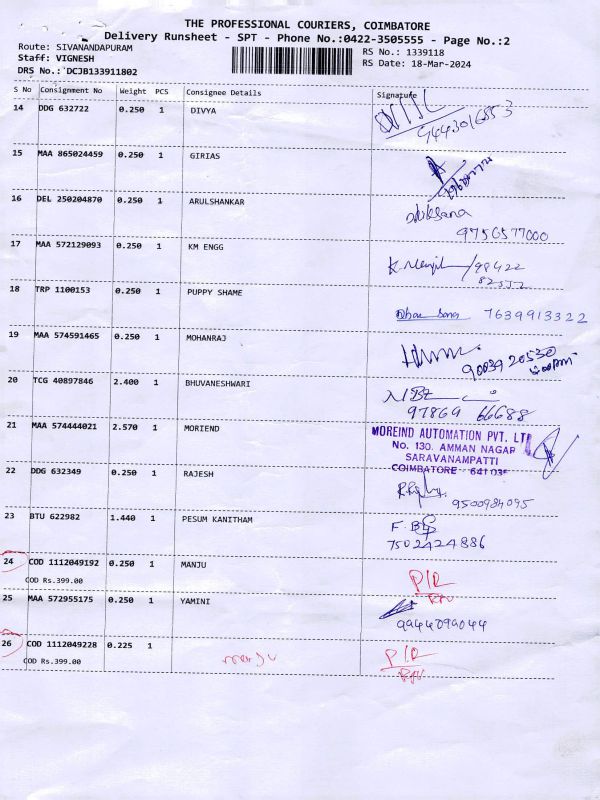 THE PROFESSIONAL COURIERS, COIMBATORE
Delivery Runsheet - SPT - Phone No.:0422-3505555 - Page No.:2
Route: SIVANANDAPURAM
RS No.: 1339118
Staff: VIGNESH
RS Date: 18-Mar-2024
DRS No.: DCJB133911802
S No Consignment No Weight PCS Consignee Details Signature
14 DDG 632722 0.250 1 DIVYA
9443016853
15 MAA 865024459 0.250 1 GIRIAS
16 DEL 250204870 0.250 1 ARULSHANKAR
9756577000
17 MAA 572129093 0.250 1 KM ENGG
98422
18 TRP 1100153 0.250 1 PUPPY SHAME
7639913322
19 MAA 574591465 0.250 1 MOHANRAJ
9003920530
20 TCG 40897846 2.400 1 BHUVANESHWARI
97869 66688
21 MAA 574444021 2.570 1 MORIEND
MOREIND AUTOMATION PVT. LTD
No. 130. AMMAN NAGAR
SARAVANAMPATTI
COIMBATORE - 641035
22 DDG 632349 0.250 1 RAJESH
9500984095
23 BTU 622982 1.440 1 PESUM KANITHAM
7502424886
24 COD 1112049192 0.250 1 MANJU
COD Rs.399.00
P/R
25 MAA 572955175 0.250 1 YAMINI
9944099044
26 COD 1112049228 0.225 1
COD Rs.399.00
manju
P/R